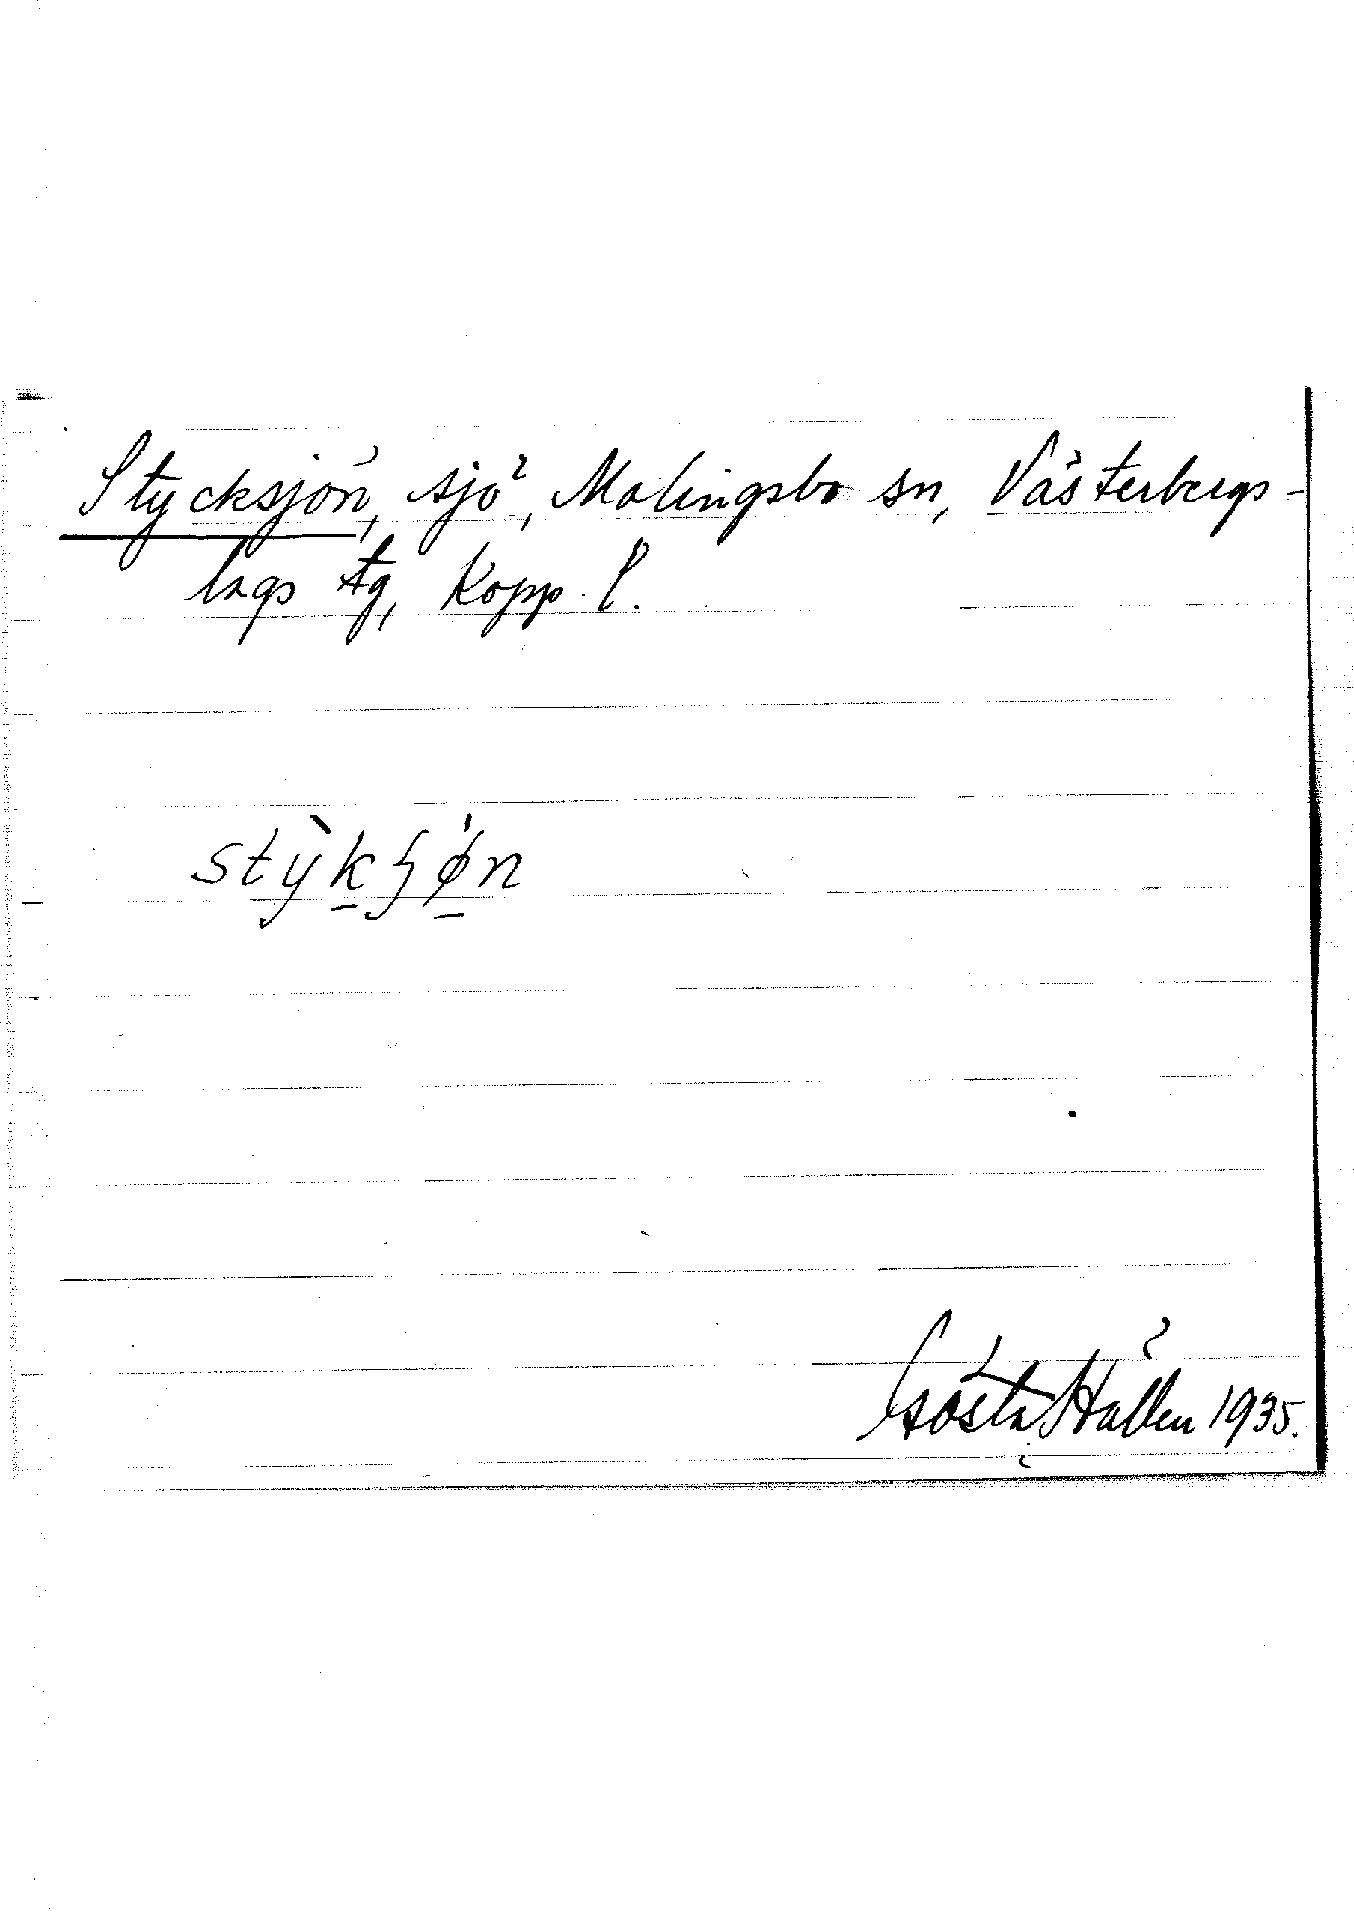 Stycksjön, sjö, Malingsbo sn, Västerbergs-
lags tg, Kopp. l.
stỳkʃǿn
Gösta Hållen 1935.